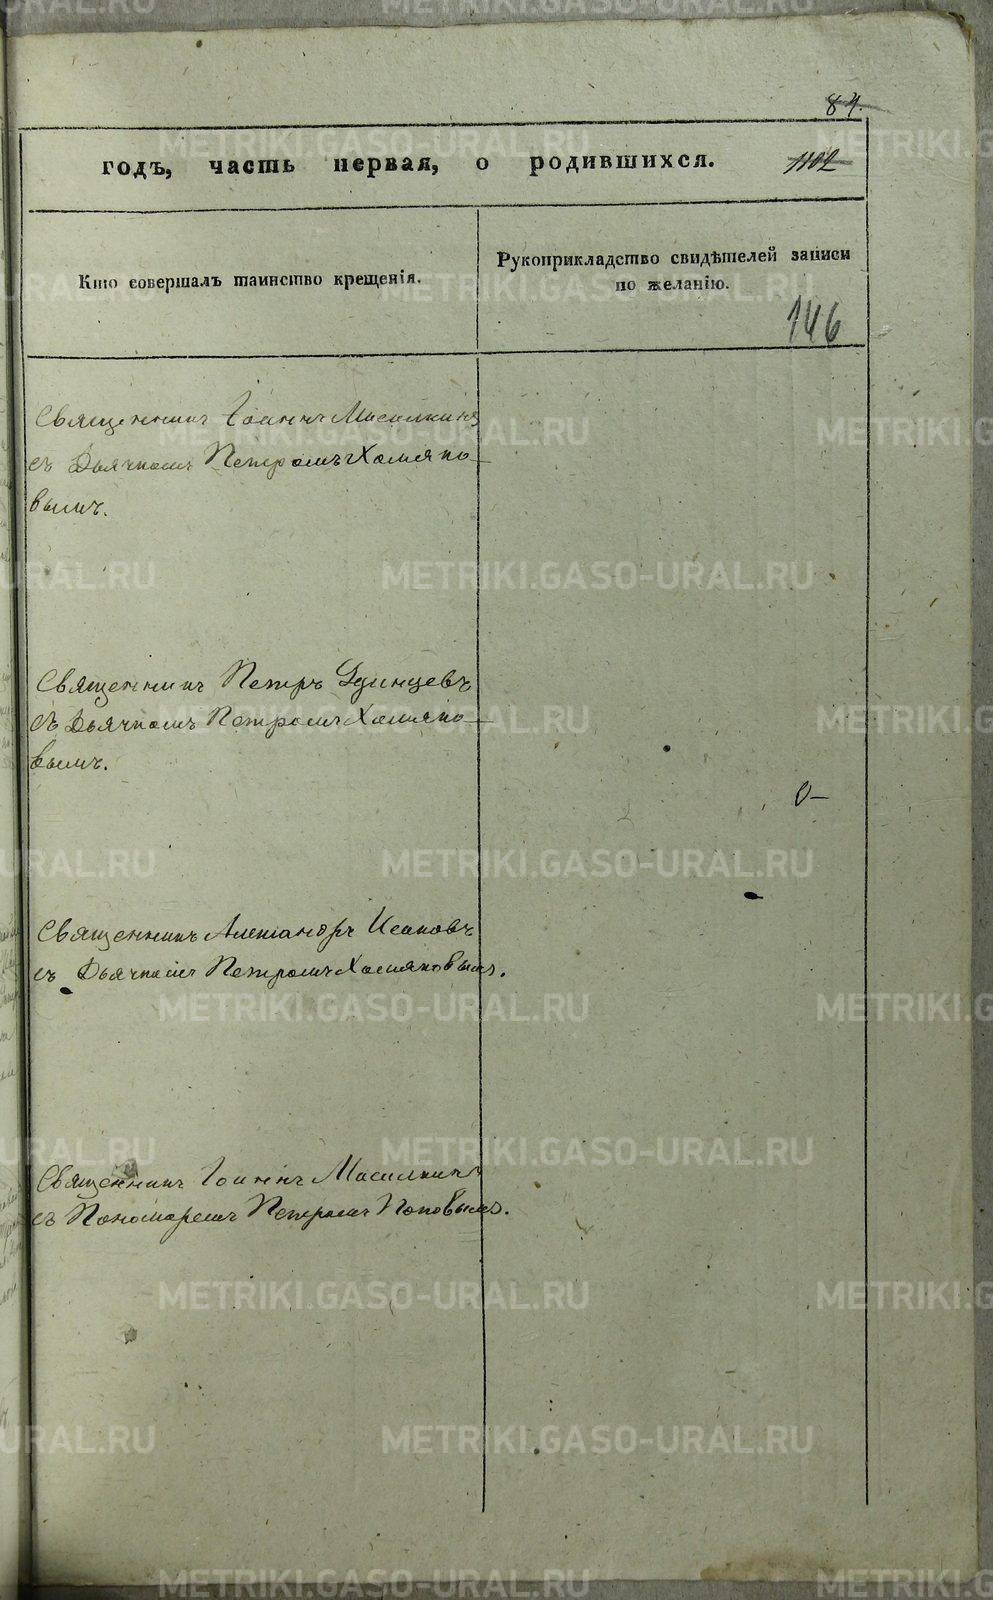 84.
годъ, часть первая, о родившихся. 1102
Кто совершалъ таинство крещенія.
Рукоприкладство свидѣтелей записи
по желанію.
146
Священникъ Іоаннъ
съ Дьячкомъ Петромъ Хомяко-
вымъ.
Священникъ Петръ Удинцевъ
съ Дьячкомъ Петромъ Хомяко-
вымъ.
Священникъ Александръ Исаковъ
съ Дьячкомъ Петромъ Хомяковымъ.
Священникъ Іоаннъ
съ Пономаремъ Петромъ Поповымъ.
METRIKI.GASO-URAL.RU